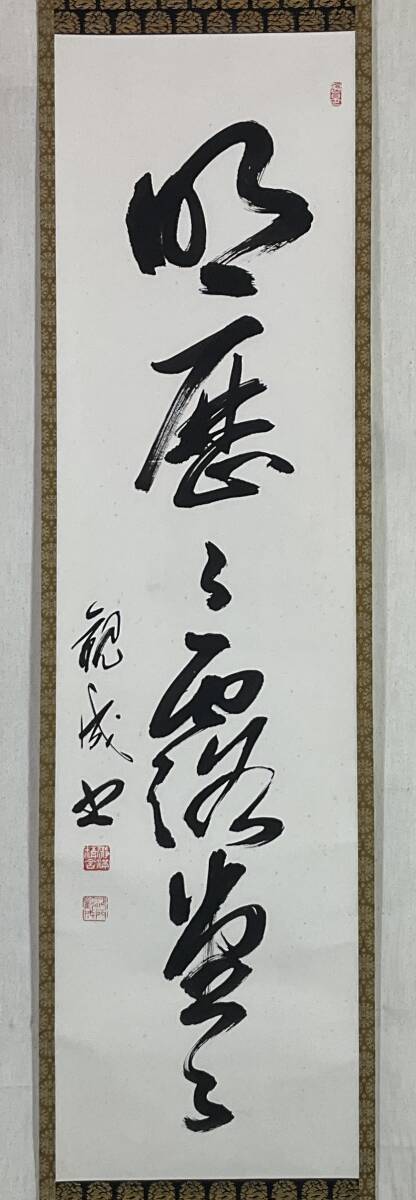 明歴々露堂々
観成書